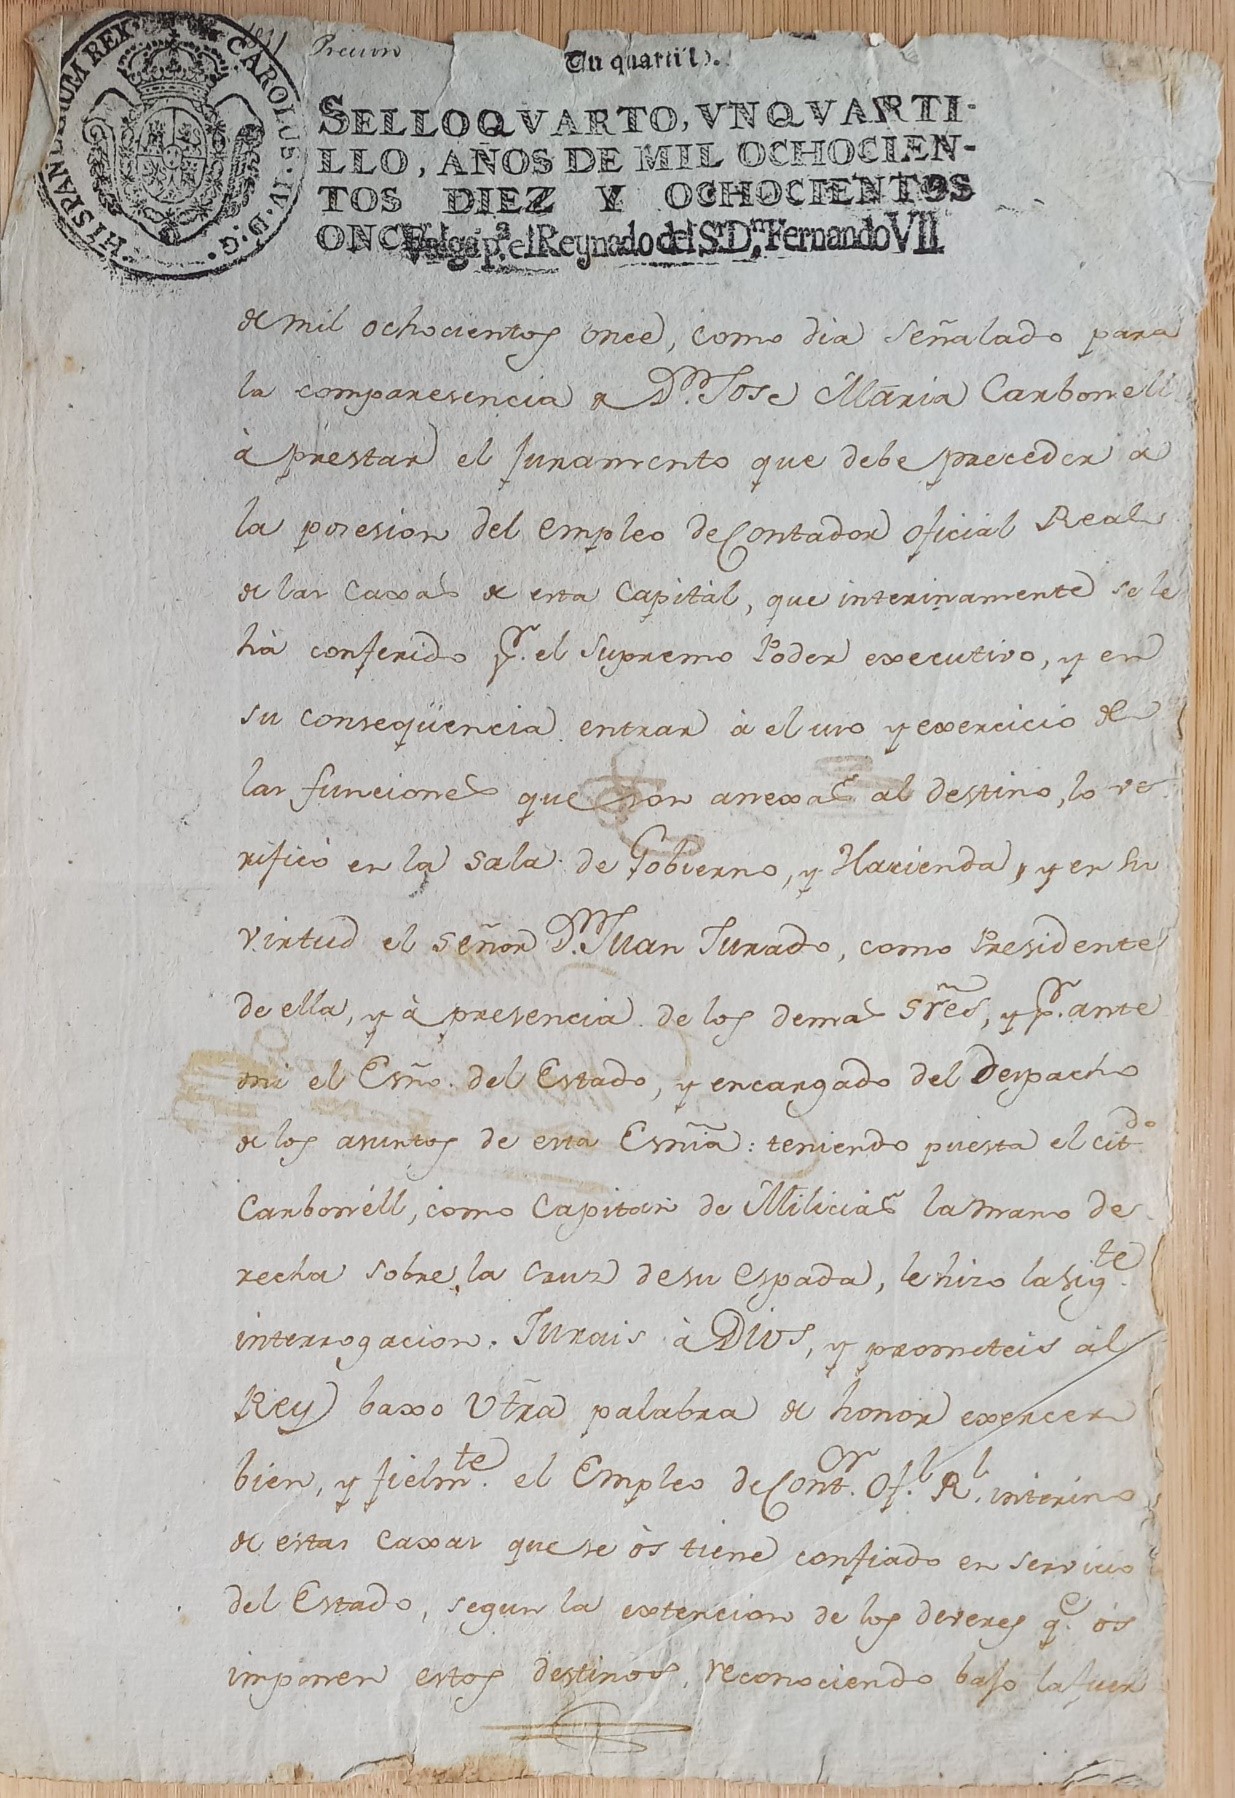 HISPANIARUM REX CAROLUS IV D G
Un quartillo.
SELLO QVARTO, VN QVARTI-
LLO, AÑOS DE MIL OCHOCIEN-
TOS DIEZ Y OCHOCIENTOS
ONCE Valga pa. el Reynado del Sr. Dn. Fernando VII
de mil ochocientos once, como dia señalado para
la comparesencia de Dn. Jose Maria Carbonell
à prestar el juramento que debe preceder à
la posesion del empleo de Contador oficial Real
de las Caxas de esta Capital, que interinamente se le
hà conferido pr. el Supremo Poder executivo, y en
su conseqüencia entrar à el uso y exercicio de
las funciones que son anexas al destino, lo ve-
rificò en la Sala de Gobierno, y Hacienda, y en su
virtud el señor Dn. Juan Jurado, como Presidente
de ella, y à presencia de los demas Sres, y pr. ante
mi el Esño. del Estado, y encargado del Despacho
de los asuntos de esta Esñia: teniendo puesta el citdo.
Carbonéll, como Capitan de Milicias la mano de-
recha sobre la cruz de su espada, le hizo la sigte.
interrogacion. Jurais à Dios, y prometeis al
Rey baxo Vtra palabra de honor exercer
bien, y fielmte. el Empleo de Contor. Ofl. Rl. interino
de estas Caxas que se òs tiene confiado en servicio
del Estado, segun la extencion de los deveres qe. òs
imponen estos destinos, reconociendo bajo la fuer